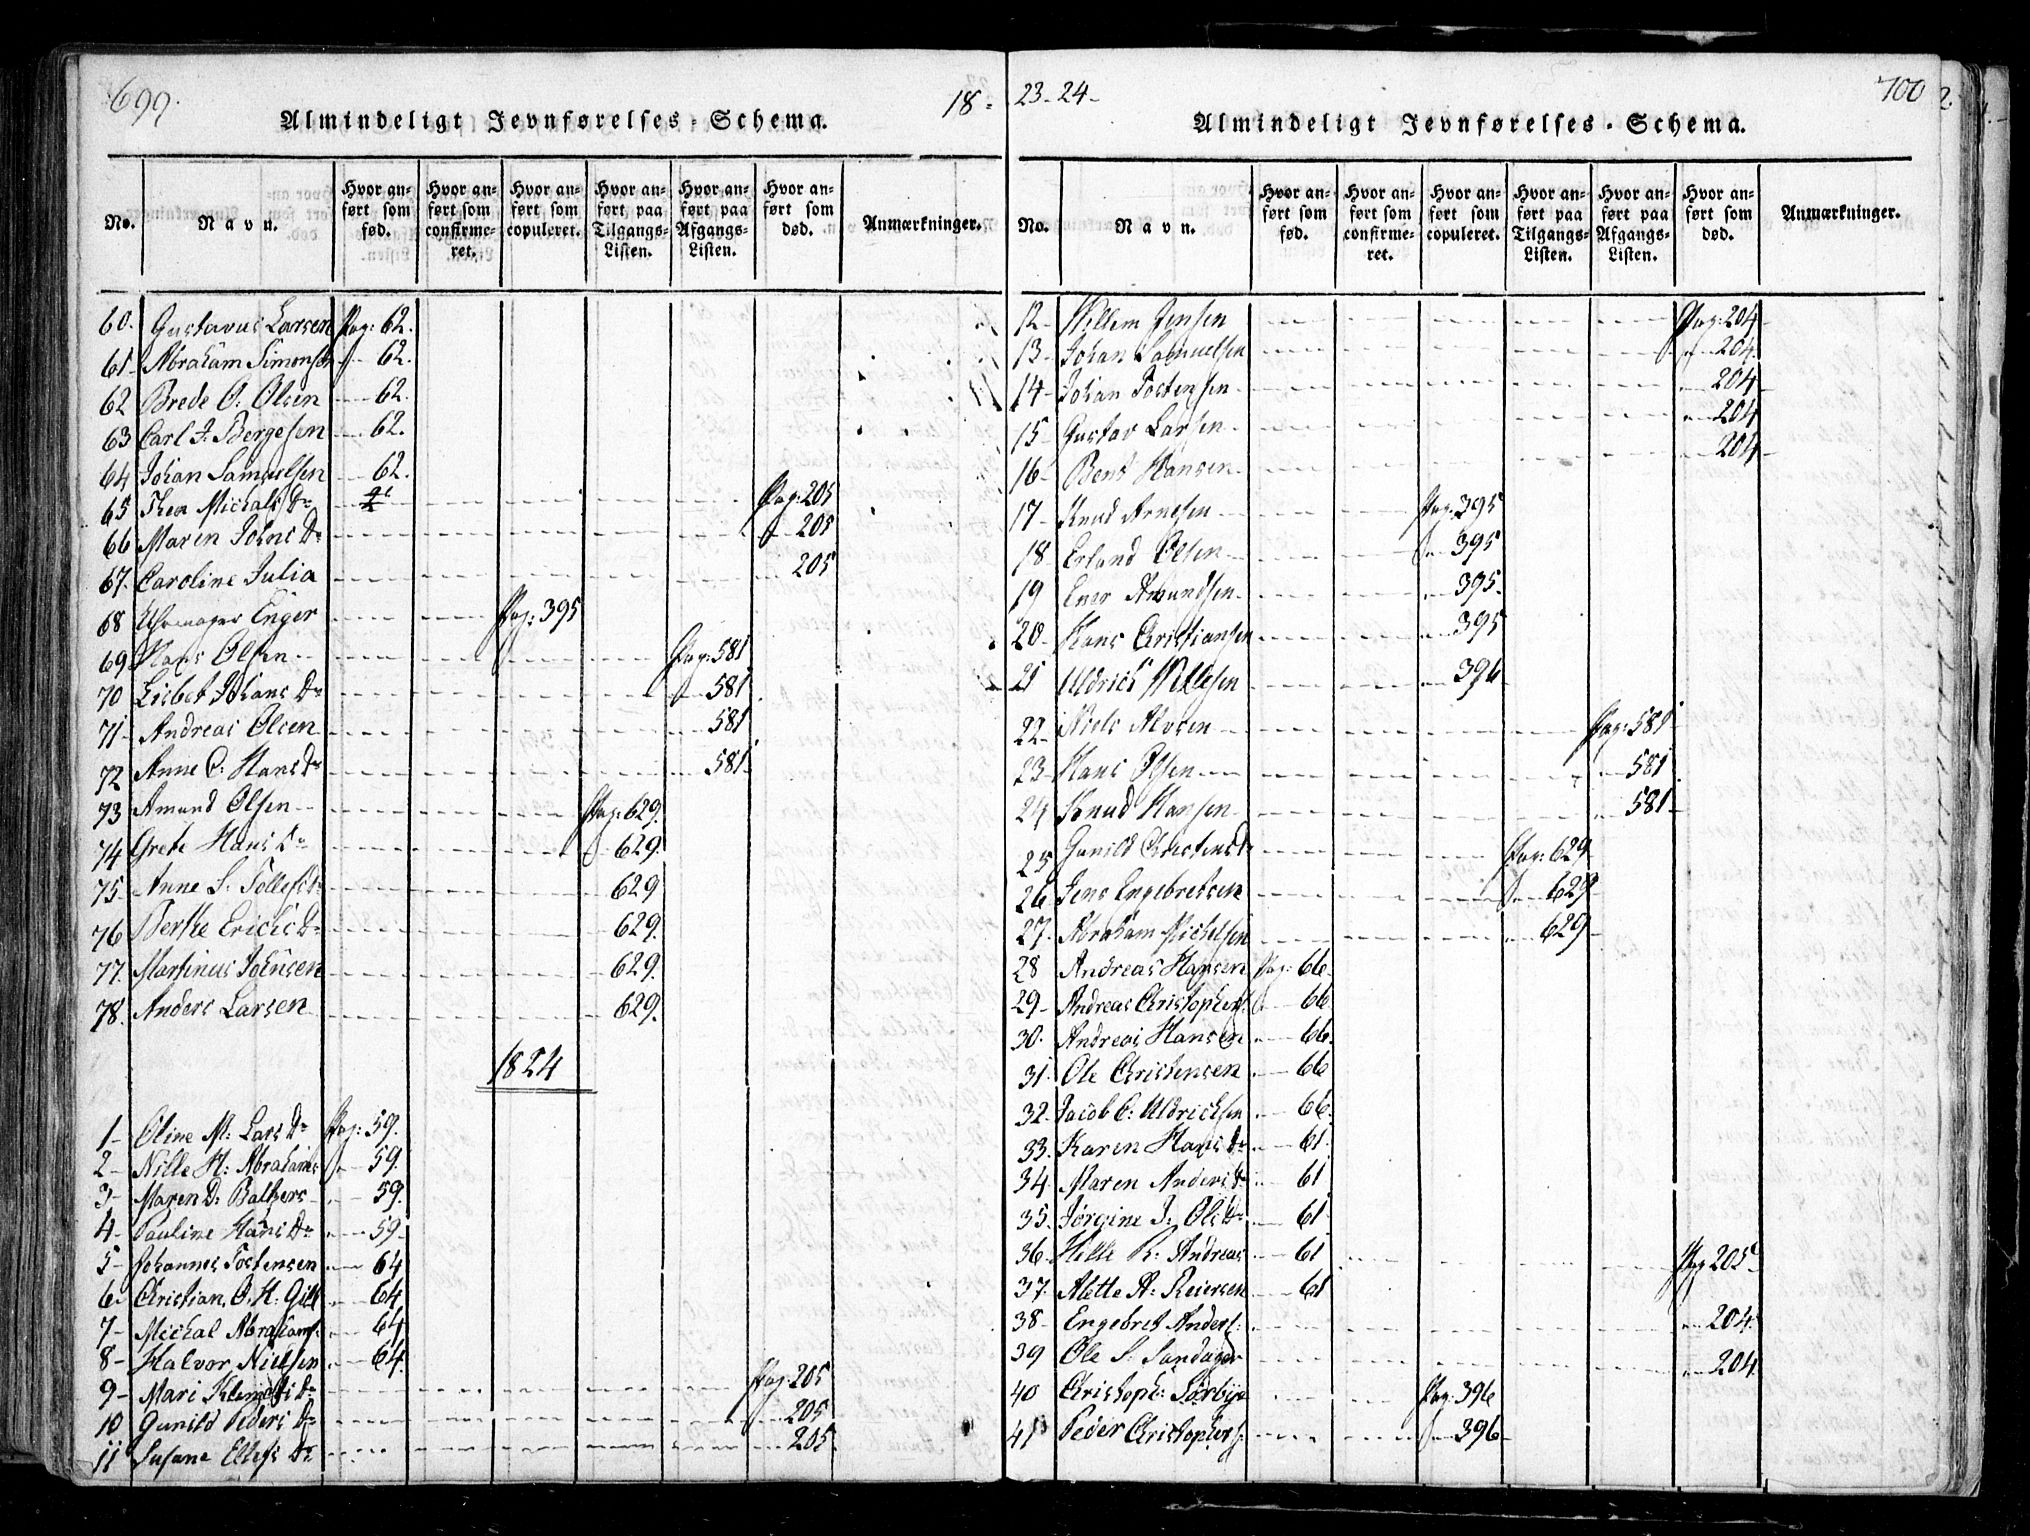 699.
18-
Almindeligt Jevnførelses-Schema.
No.
Navn.
Hvor anført som fød.
Hvor anført som confirmeret.
Hvor anført som copuleret.
Hvor anført paa Tilgangs-Listen.
Hvor anført paa Afgangs-Listen.
Hvor anført som død.
Anmærkninger.
60. Gustavus Larsen Pag: 62.
61- Abraham Simonsen 62.
62 Brede O: Olsen 62.
63 Carl J. Bergesen 62.
64 Johan Samuelsen 62.
65 Thea Michals Dr Pag: 205
66 Maren Johns Dr 205
67. Caroline Julia 205
68 Enger Pag: 395
69 Hans Olsen Pag: 581
70 Lisbet Johans Dr 581
71- Andreas Olsen 581
72 Anne C: Hans Dr 581
73 Amund Olsen Pag: 629.
74 Grete Hans Dr 629.
75- Anne S. Tollefs Dr 629
76 Berthe Erichs Dr 629.
77. Martinus Johnsen 629.
78. Anders Larsen 629.
1824
1- Oline M: Lars Dr Pag: 59.
2- Nille H: Abrahams 59.
3- Maren D: Balzers 59.
4- Pauline Hans Dr 59-
5- Johannes Tostensen 64
6- Christian. O. H: Gill 64
7- Michal Abrahams: 64
8- Halvor Nielsen 64.
9- Mari Klemets Dr Pag: 205
10 Gunild Peders Dr 205
11 Susane Ellefs Dr 205
23-24-
700
Almindeligt Jevnførelses-Schema.
No.
Navn.
Hvor anført som fød.
Hvor anført som confirmeret.
Hvor anført som copuleret.
Hvor anført paa Tilgangs-Listen.
Hvor anført paa Afgangs-Listen.
Hvor anført som død.
Anmærkninger.
12- Willem Jensen Pag: 204
13- Johan Samuelsen 204.
14- Johan Tostensen 204
15- Gustav Larsen 204
16- Bent Hansen 204
17- Knud Arnesen Pag: 395
18 Erland Olsen 395
19 Ener Amundsen 395.
20- Hans Christiansen 395
21 Uldrich Willesen 396
22- Niels Alvsen Pag: 581
23- Hans Olsen 581
24 Knud Hansen 581-
25 Gunild Christens Dr Pag: 629
26 Jens Engebretsen 629
27. Abraham Michelsen 629
28 Andreas Hansen Pag: 66.
29- Andreas Christophers: 66
30. Andreas Hansen 66.
31. Ole Christensen 66
32. Jacob C: Uldrichsen 66.
33. Karen Hans Dr 61.
34 Maren Anders Dr 61
35. Jørgine J: Ols Dr 61
36- Hille R: Andreas 61 Pag 205
37. Alette A: Reiersen 61
38- Engebret Anders: 204.
39 Ole S: Sandager 204
40 Christoph: Sørbye Pag: 396
41 Peder Christophers 396